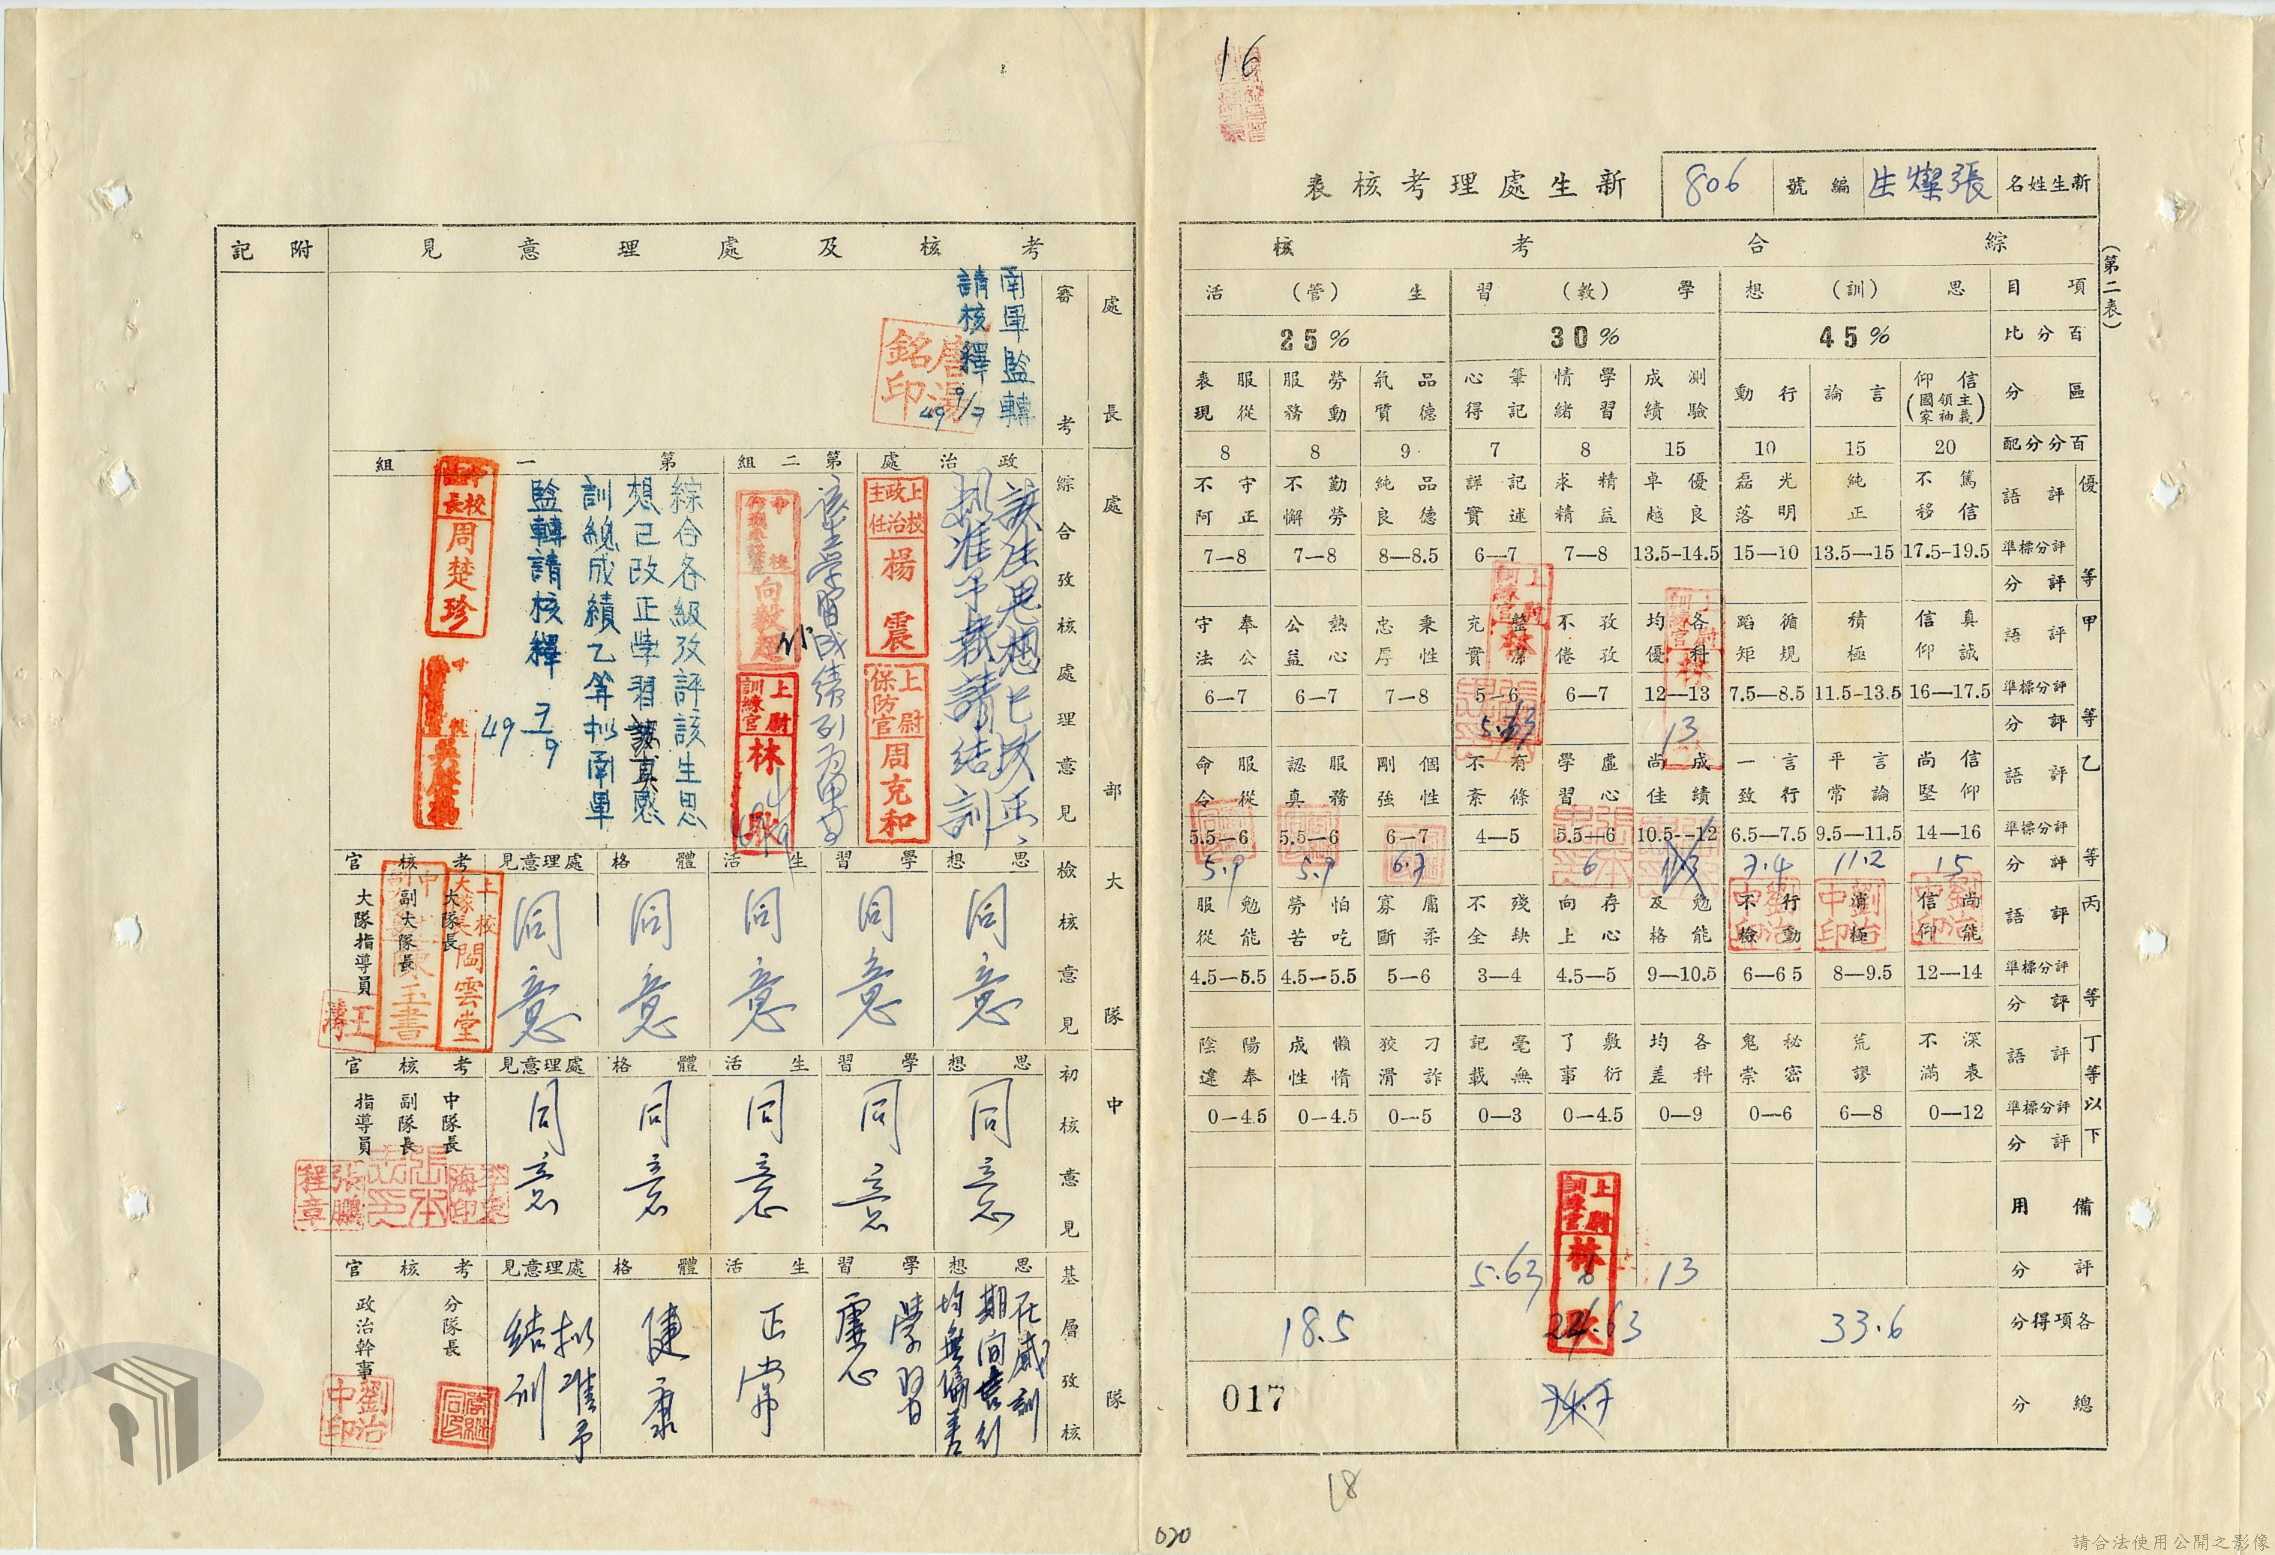 16
新生姓名
張燦生
編號
806
新生處理考核表
(第二表)
綜合考核
項目
思(訓)想
學(教)習
生(管)活
百分比
45%
30%
25%
區分
信仰(主義領袖國家)
言論
行動
測驗成績
學習情緒
筆記心得
品德氣質
勞動服務
服從表現
百分分配
20
15
10
15
8
7
9
8
8
優等
評語
篤信不移
純正
光明磊落
優良卓越
精益求精
記述詳實
品德純良
勤勞不懈
守正不阿
評分標準
17.5-19.5
13.5—15
15—10
13.5-14.5
7—8
6—7
8—8.5
7—8
7—8
評分
甲等
評語
真誠信仰
積極
循規蹈矩
各科均優
孜孜不倦
整潔充實
秉性忠厚
熱心公益
奉公守法
評分標準
16—17.5
11.5-13.5
7.5—8.5
12—13
6—7
5—6
7—8
6—7
6—7
評分
13
乙等
評語
信仰尚堅
言論平常
言行一致
成績尚佳
虛心學習
有條不紊
個性剛強
服務認真
服從命令
評分標準
14—16
9.5—11.5
6.5—7.5
10.5--12
5.5—6
4—5
6—7
5.5—6
5.5—6
評分
15
11.2
7.4
6
6.7
5.9
5.9
丙等
評語
尚能信仰
消極
行動不檢
勉能及格
存心向上
殘缺不全
庸柔寡斷
怕吃勞苦
勉能服從
評分標準
12—14
8—9.5
6—65
9—10.5
4.5—5
3—4
5—6
4.5—5.5
4.5—5.5
評分
丁等以下
評語
深表不滿
荒謬
秘密鬼祟
各科均差
敷衍了事
毫無記載
刁詐狡滑
懶惰成性
陽奉陰違
評分標準
0—12
6—8
0—6
0—9
0—4.5
0—3
0—5
0—4.5
0—4.5
評分
備用
評分
13
6
5.63
各項得分
33.6
24.63
18.5
總分
017
18
020
考核及處理意見
附記
處長
審考
南軍監轉
請核釋
9/7
49
唐湯銘印
處部
綜合考核處理意見
政治處
該生思想已改正、
擬准予報請結訓
上校政治主任楊震
上尉保防官周克和
第二組
該生學習成績列為甲等
中校
向毅超
上尉訓練官林
第一組
綜合各級考評該生思
想已改正學習認真感
訓總成績乙等擬南軍
監轉請核釋
49
中校
長周楚珍
大隊
檢核意見
思想
學習
生活
體格
處理意見
考核官
同意
同意
同意
同意
同意
大隊長
副大隊長
大隊指導員
上校大隊長閻雲堂
中隊
初核意見
思想
學習
生活
體格
處理意見
考核官
同意
同意
同意
同意
同意
中隊長
副隊長
指導員
張鵬程章
隊
基層考核
思想
學習
生活
體格
處理意見
考核官
在感訓
期間言行
均無偏差
學習
虛心
正常
健康
擬准予
結訓
分隊長
政治幹事
劉治中印
請合法使用公開之影像